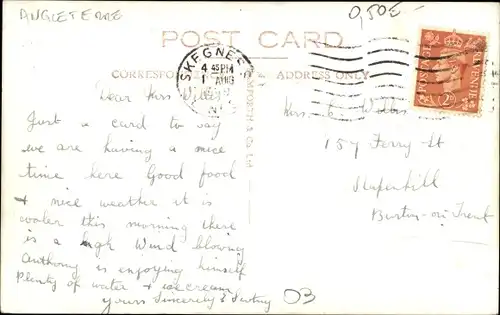 ANGLETERRE
0,50£
POST CARD
SKEGNESS
4 45 PM
1 AUG
CORRESPONDENCE
ADDRESS ONLY
& Co Ltd
POSTAGE
REVENUE
Dear Miss Willis
Just a card to say
we are having a nice
time here Good food
+ nice weather it is
cooler this morning there
is a high Wind blowing
Anthony is enjoying himself
Plenty of water + icecream
yours Sincerely
Miss Willis
157 Ferry St
Stapenhill
Burton-on-Trent
03